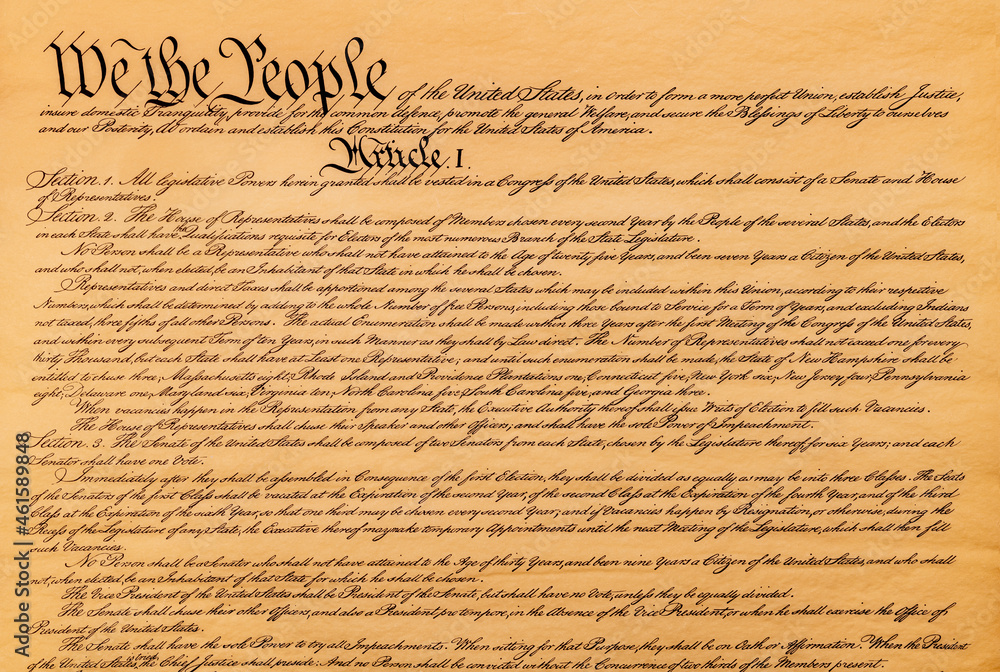 We the People of the United States, in order to form a more perfect Union, establish Justice,
insure domestic Tranquility, provide for the common defence, promote the general Welfare, and secure the Blessings of Liberty to ourselves
and our Posterity, do ordain and establish this Constitution for the United States of America.
Article. I.
Section. 1. All legislative Powers herein granted shall be vested in a Congress of the United States, which shall consist of a Senate and House
of Representatives.
Section. 2. The House of Representatives shall be composed of Members chosen every second Year by the People of the several States, and the Electors
in each State shall have the Qualifications requisite for Electors of the most numerous Branch of the State Legislature.
No Person shall be a Representative who shall not have attained to the Age of twenty five Years, and been seven Years a Citizen of the United States,
and who shall not, when elected, be an Inhabitant of that State in which he shall be chosen.
Representatives and direct Taxes shall be apportioned among the several States which may be included within this Union, according to their respective
Numbers, which shall be determined by adding to the whole Number of free Persons, including those bound to Service for a Term of Years, and excluding Indians
not taxed, three fifths of all other Persons. The actual Enumeration shall be made within three Years after the first Meeting of the Congress of the United States,
and within every subsequent Term of ten Years, in such Manner as they shall by Law direct. The Number of Representatives shall not exceed one for every
thirty Thousand, but each State shall have at Least one Representative; and until such enumeration shall be made, the State of New Hampshire shall be
entitled to chuse three, Massachusetts eight, Rhode Island and Providence Plantations one, Connecticut five, New York six, New Jersey four, Pennsylvania
eight, Delaware one, Maryland six, Virginia ten, North Carolina five, South Carolina five, and Georgia three.
When vacancies happen in the Representation from any State, the Executive Authority thereof shall issue Writs of Election to fill such Vacancies.
The House of Representatives shall chuse their Speaker and other Officers; and shall have the sole Power of Impeachment.
Section. 3. The Senate of the United States shall be composed of two Senators from each State, chosen by the Legislature thereof, for six Years; and each
Senator shall have one Vote.
Immediately after they shall be assembled in Consequence of the first Election, they shall be divided as equally as may be into three Classes. The Seats
of the Senators of the first Class shall be vacated at the Expiration of the second Year, of the second Class at the Expiration of the fourth Year, and of the third
Class at the Expiration of the sixth Year, so that one third may be chosen every second Year; and if Vacancies happen by Resignation, or otherwise, during the
Recess of the Legislature of any State, the Executive thereof may make temporary Appointments until the next Meeting of the Legislature, which shall then fill
such Vacancies.
No Person shall be a Senator who shall not have attained to the Age of thirty Years, and been nine Years a Citizen of the United States, and who shall
not, when elected, be an Inhabitant of that State for which he shall be chosen.
The Vice President of the United States shall be President of the Senate, but shall have no Vote, unless they be equally divided.
The Senate shall chuse their other Officers, and also a President pro tempore, in the Absence of the Vice President, or when he shall exercise the Office of
President of the United States.
The Senate shall have the sole Power to try all Impeachments. When sitting for that Purpose, they shall be on Oath or Affirmation. When the President
of the United States is tried, the Chief Justice shall preside: And no Person shall be convicted without the Concurrence of two thirds of the Members present.
Adobe Stock | #461589848